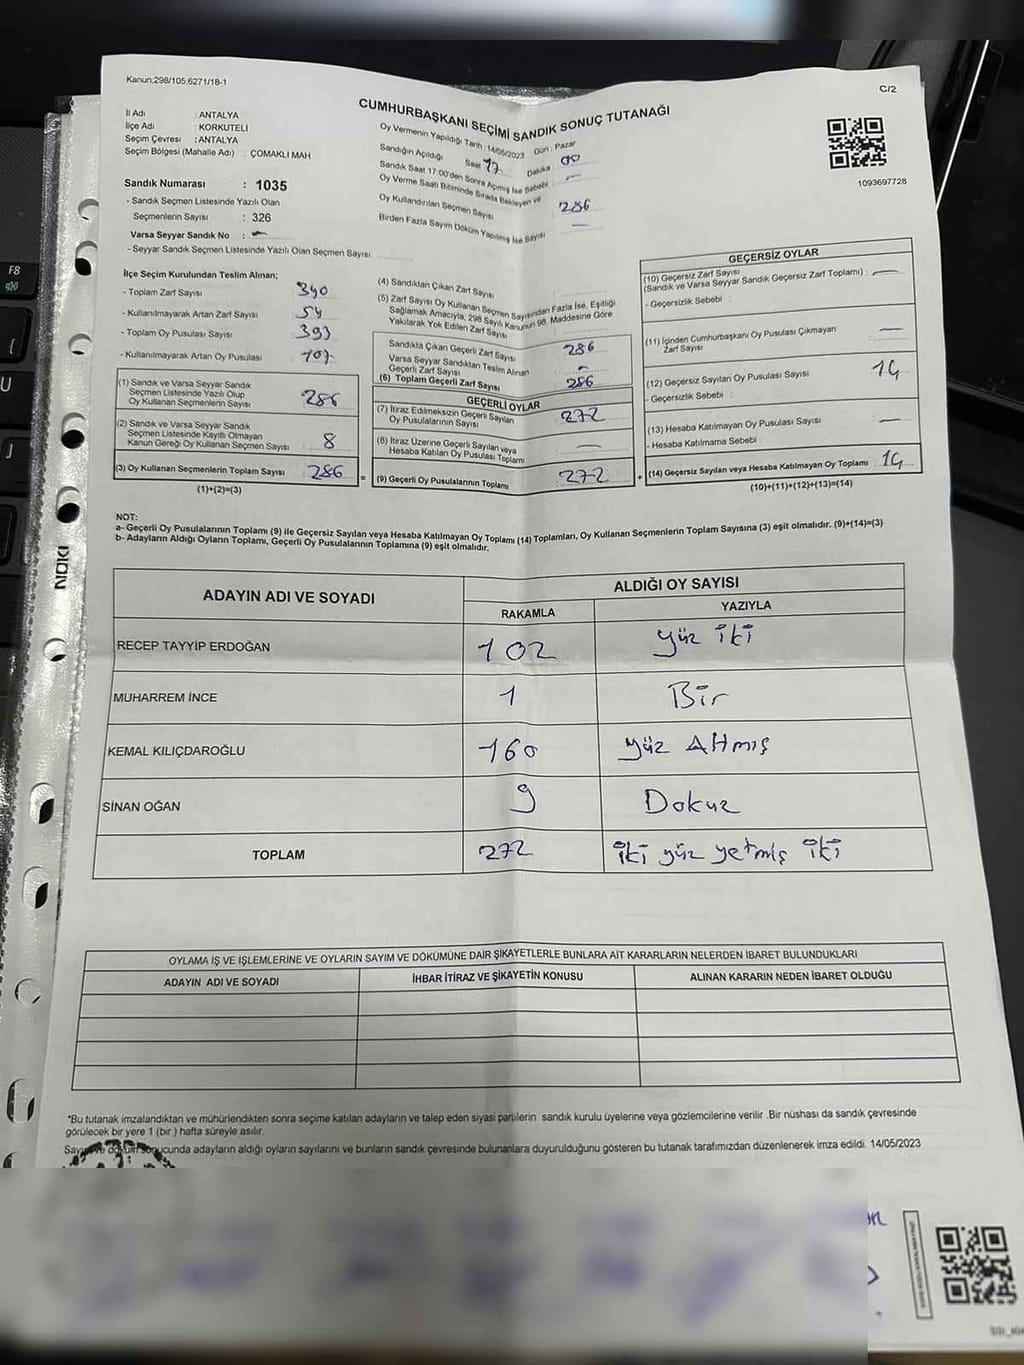 Kanun:298/105,6271/18-1
C/2
CUMHURBAŞKANI SEÇİMİ SANDIK SONUÇ TUTANAĞI
İl Adı : ANTALYA
İlçe Adı : KORKUTELİ
Seçim Çevresi : ANTALYA
Seçim Bölgesi (Mahalle Adı) : ÇOMAKLI MAH
Oy Vermenin Yapıldığı Tarih : 14/05/2023 Gün : Pazar
Sandığın Açıldığı Saat 17 Dakika : 00
Sandık Saat 17:00'den Sonra Açılmış İse Sebebi : —
Oy Verme Saati Bitiminde Sırada Bekleyen ve
Oy Kullandırılan Seçmen Sayısı 286
Birden Fazla Sayım Döküm Yapılmış İse Sayısı —
1093697728
Sandık Numarası : 1035
- Sandık Seçmen Listesinde Yazılı Olan
Seçmenlerin Sayısı : 326
Varsa Seyyar Sandık No : —
- Seyyar Sandık Seçmen Listesinde Yazılı Olan Seçmen Sayısı:
İlçe Seçim Kurulundan Teslim Alınan;
- Toplam Zarf Sayısı 340
- Kullanılmayarak Artan Zarf Sayısı 54
- Toplam Oy Pusulası Sayısı 393
- Kullanılmayarak Artan Oy Pusulası 107
(1) Sandık ve Varsa Seyyar Sandık
Seçmen Listesinde Yazılı Olup
Oy Kullanan Seçmenlerin Sayısı 286
(2) Sandık ve Varsa Seyyar Sandık
Seçmen Listesinde Kayıtlı Olmayan
Kanun Gereği Oy Kullanan Seçmen Sayısı 8
(3) Oy Kullanan Seçmenlerin Toplam Sayısı 286
(1)+(2)=(3)
(4) Sandıktan Çıkan Zarf Sayısı
(5) Zarf Sayısı Oy Kullanan Seçmen Sayısından Fazla İse, Eşitliği
Sağlamak Amacıyla, 298 Sayılı Kanunun 98. Maddesine Göre
Yakılarak Yok Edilen Zarf Sayısı
Sandıkta Çıkan Geçerli Zarf Sayısı 286
Varsa Seyyar Sandıktan Teslim Alınan
Geçerli Zarf Sayısı
(6) Toplam Geçerli Zarf Sayısı 286
GEÇERLİ OYLAR
(7) İtiraz Edilmeksizin Geçerli Sayılan
Oy Pusulalarının Sayısı 272
(8) İtiraz Üzerine Geçerli Sayılan veya
Hesaba Katılan Oy Pusulası Toplamı —
(9) Geçerli Oy Pusulalarının Toplamı 272
=
+
GEÇERSİZ OYLAR
(10) Geçersiz Zarf Sayısı
(Sandık ve Varsa Seyyar Sandık Geçersiz Zarf Toplamı) : —
- Geçersizlik Sebebi :
(11) İçinden Cumhurbaşkanı Oy Pusulası Çıkmayan
Zarf Sayısı —
(12) Geçersiz Sayılan Oy Pusulası Sayısı 14
- Geçersizlik Sebebi :
(13) Hesaba Katılmayan Oy Pusulası Sayısı —
- Hesaba Katılmama Sebebi :
(14) Geçersiz Sayılan veya Hesaba Katılmayan Oy Toplamı 14
(10)+(11)+(12)+(13)=(14)
NOT:
a- Geçerli Oy Pusulalarının Toplamı (9) ile Geçersiz Sayılan veya Hesaba Katılmayan Oy Toplamı (14) Toplamları, Oy Kullanan Seçmenlerin Toplam Sayısına (3) eşit olmalıdır. (9)+(14)=(3)
b- Adayların Aldığı Oyların Toplamı, Geçerli Oy Pusulalarının Toplamına (9) eşit olmalıdır.
ADAYIN ADI VE SOYADI
ALDIĞI OY SAYISI
RAKAMLA YAZIYLA
RECEP TAYYİP ERDOĞAN 102 yüz iki
MUHARREM İNCE 1 Bir
KEMAL KILIÇDAROĞLU 160 yüz Altmış
SİNAN OĞAN 9 Dokuz
TOPLAM 272 iki yüz yetmiş iki
OYLAMA İŞ VE İŞLEMLERİNE VE OYLARIN SAYIM VE DÖKÜMÜNE DAİR ŞİKAYETLERLE BUNLARA AİT KARARLARIN NELERDEN İBARET BULUNDUKLARI
ADAYIN ADI VE SOYADI İHBAR İTİRAZ VE ŞİKAYETİN KONUSU ALINAN KARARIN NEDEN İBARET OLDUĞU
*Bu tutanak imzalandıktan ve mühürlendikten sonra seçime katılan adayların ve talep eden siyasi partilerin sandık kurulu üyelerine veya gözlemcilerine verilir .Bir nüshası da sandık çevresinde
görülecek bir yere 1 (bir ) hafta süreyle asılır.
Sayım ve döküm sonucunda adayların aldığı oyların sayılarını ve bunların sandık çevresinde bulunanlara duyurulduğunu gösteren bu tutanak tarafımızdan düzenlenerek imza edildi. 14/05/2023
F8
U
J